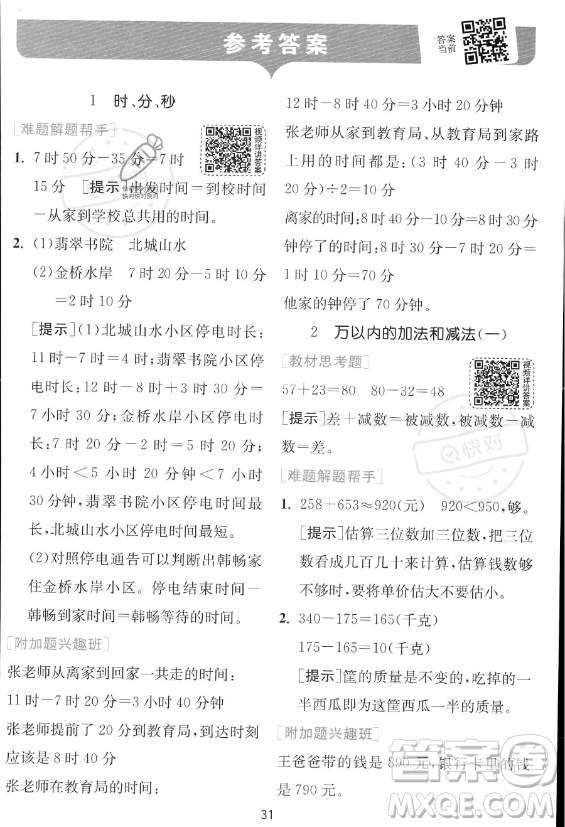 参考答案
答案
当前
1 时、分、秒
[难题解题帮手]
视频详讲答案
1. 7时50分-35分-7时
15分 [提示]出发时间=到校时间
-从家到学校总共用的时间。
2. (1)翡翠书院 北城山水
(2)金桥水岸 7时20分-5时10分
=2时10分
[提示](1)北城山水小区停电时长:
11时-7时=4时;翡翠书院小区停
电时长:11时-7时40分=3小时
20分钟;金桥水岸小区停电时长:
7时20分-5时10分=2小时10分;
4小时<5小时20分钟<7小时
20分钟,翡翠书院小区停电时间最
长,北城山水小区停电时间最短。
(2)对照停电通告可以判断出韩畅家
住金桥水岸小区。停电结束时间-
韩畅到家时间=韩畅等待的时间。
[附加题兴趣班]
张老师从离家到回家一共走的时间:
11时-7时40分=3时20分
张老师提前了20分到教育局,到达时刻
应该是8时40分
张老师在教育局的时间:
12时-8时40分=3小时20分钟
张老师从家到教育局、从教育局到家路
上用的时间都是:(3时40分-3时
20分)÷2=10分
离家的时间:8时40分-10分=8时30分
钟停了的时间:8时30分-7时40分=
50分
他家的钟停了50分钟
2 万以内的加法和减法(一)
[教材思考题]
视频详讲答案
57+23=80 80-32=48
[提示]差+减数=被减数,被减数-减
数=差。
[难题解题帮手]
1. 258+653≈920(元) 920<950,够。
[提示]估算三位数加三位数,把三位数
看成几百几十来计算,估算钱数够不
够时,要将单价估大不估小。
2. 340-175=165(千克)
175-165=10(千克)
[提示]筐的质量是不变的,吃掉的一
半西瓜即为这筐西瓜质量的一半。
[附加题兴趣班]
王爸爸带的钱是890元,银行卡里的钱
是790元。
31
快对
答案圈
MXQE.COM